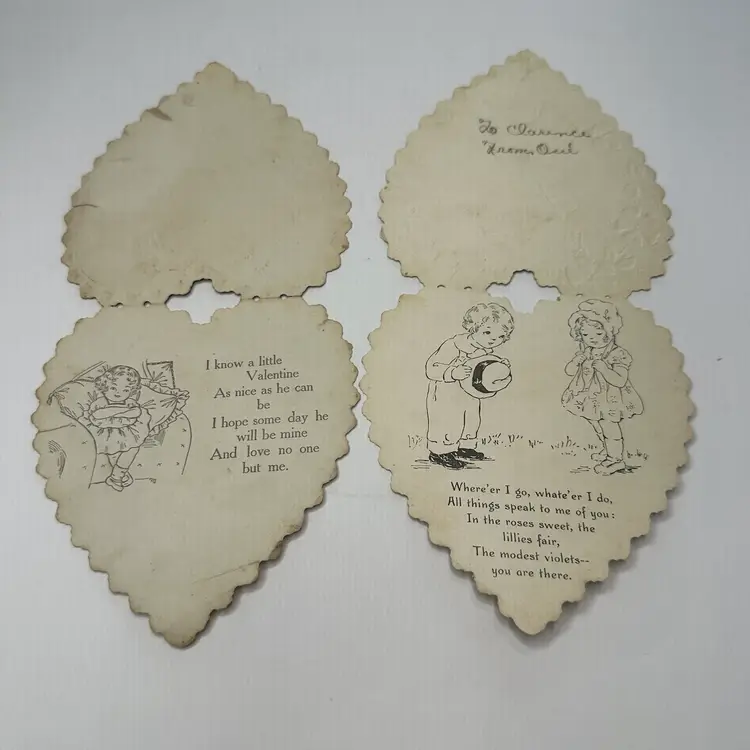 I know a little
Valentine
As nice as he can
be
I hope some day he
will be mine
And love no one
but me.
To Clarence
From
Where'er I go, whate'er I do,
All things speak to me of you:
In the roses sweet, the
lillies fair,
The modest violets--
you are there.